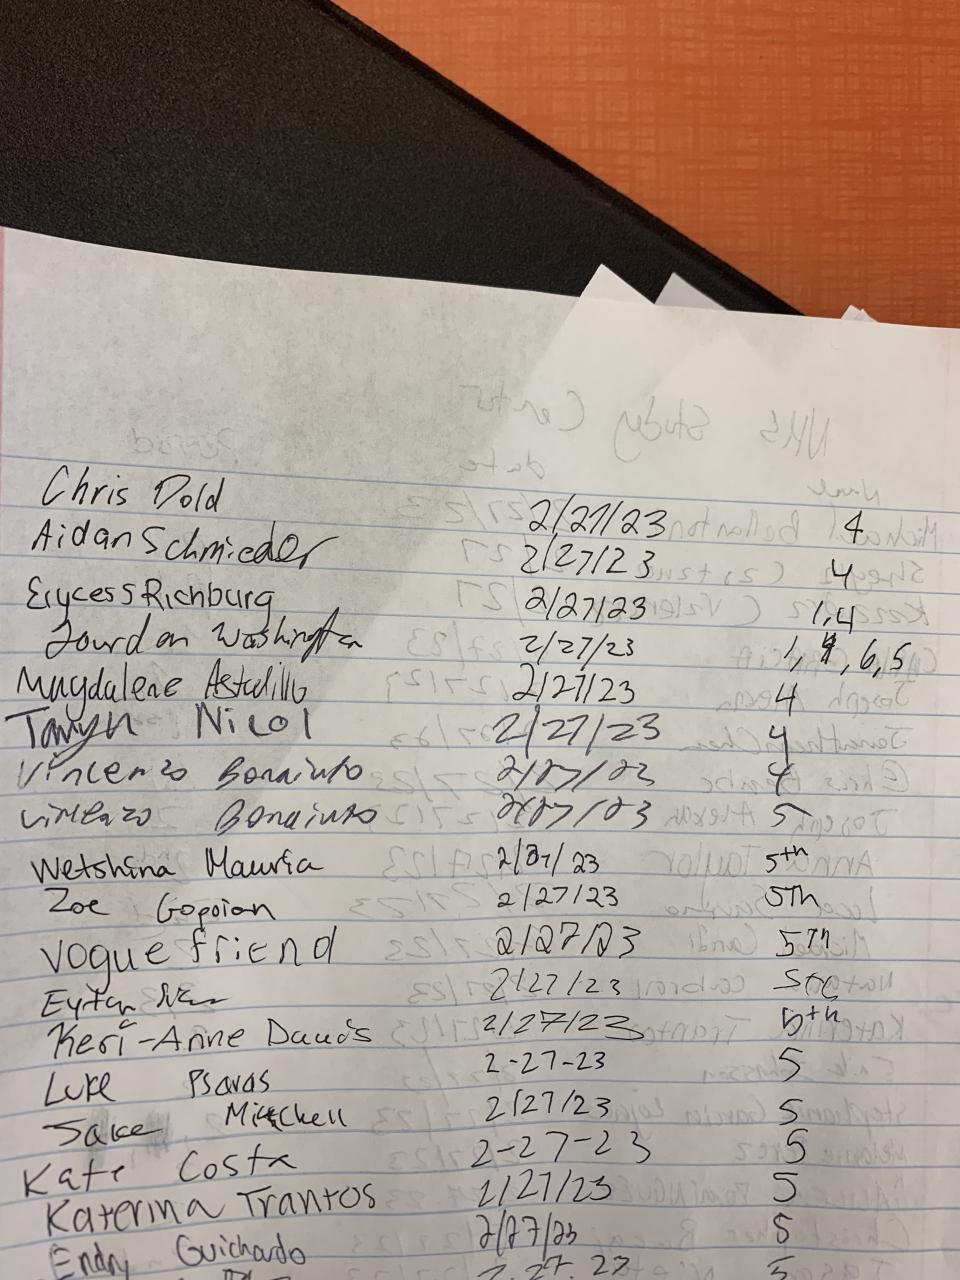 Chris Dold 2/27/23 4
Aidan Schmieder 2/27/23 4
Erycess Richburg 2/27/23 1,4
Jourdan Washington 2/27/23 1, 4, 6, 5
Magdalene Astudillo 2/27/23 4
Taryn Nicol 2/27/23 4
Vincenzo Bonaiuto 2/27/23 4
Vincenzo Bonaiuto 2/27/23 5
Wetshina Mauria 2/27/23 5th
Zoe Gopoian 2/27/23 5Th
Vogue friend 2/27/23 5Th
Eytan 2/27/23
Keri-Anne Davis 2/27/23 5th
Luke Psaras 2-27-23 5
Jake Mitchell 2/27/23 5
Kate Costa 2-27-23 5
Katerina Trantos 2/27/23 5
Endry Guichardo 2/27/23 5